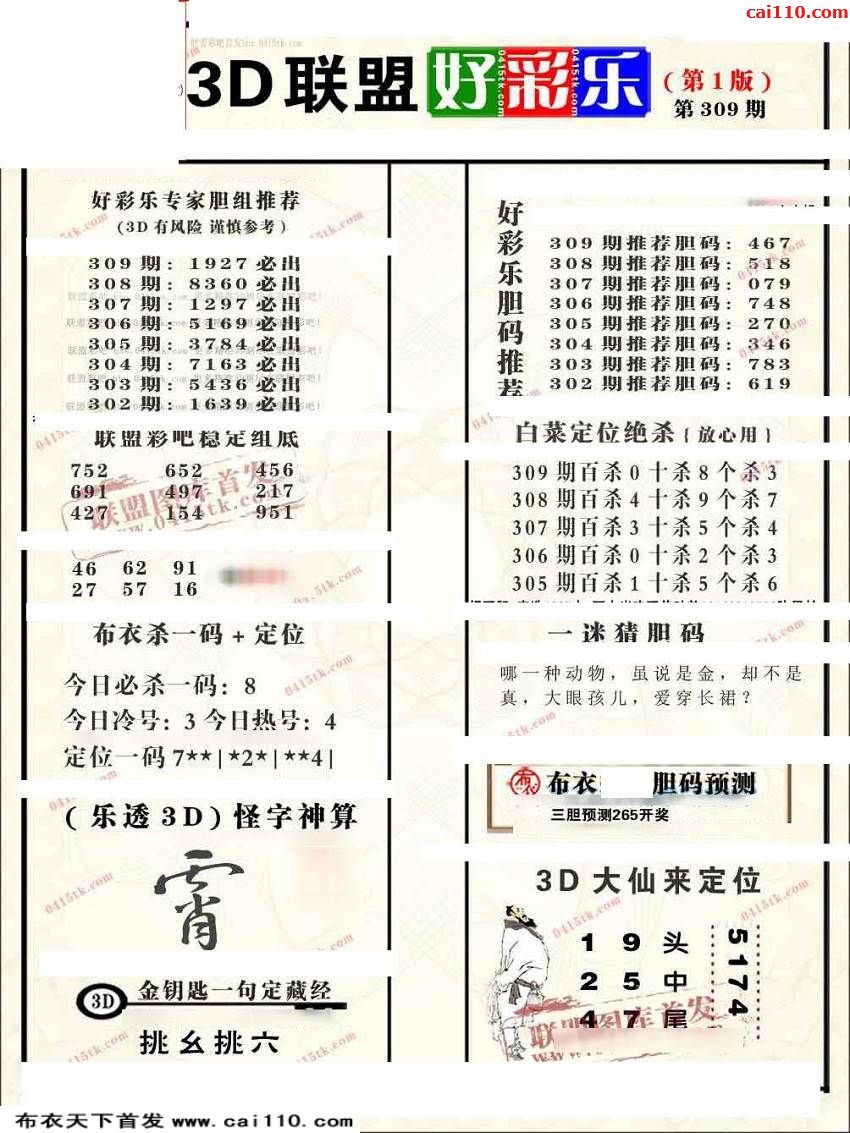 cai110.com
3D联盟好彩乐
(第1版)
第309期
好彩乐专家胆组推荐
(3D有风险 谨慎参考)
309期: 1927必出
308期: 8360必出
307期: 1297必出
306期: 5169必出
305期: 3784必出
304期: 7163必出
303期: 5436必出
302期: 1639必出
联盟彩吧稳定组底
752 652 456
691 497 217
427 154 951
46 62 91
27 57 16
布衣杀一码+定位
今日必杀一码: 8
今日冷号: 3 今日热号: 4
定位一码7**|*2*|**4|
(乐透3D)怪字神算
霄
3D 金钥匙一句定藏经
挑幺挑六
好彩乐胆码推荐
309期推荐胆码: 467
308期推荐胆码: 518
307期推荐胆码: 079
306期推荐胆码: 748
305期推荐胆码: 270
304期推荐胆码: 346
303期推荐胆码: 783
302期推荐胆码: 619
白菜定位绝杀{放心用}
309期百杀0十杀8个杀3
308期百杀4十杀9个杀7
307期百杀3十杀5个杀4
306期百杀0十杀2个杀3
305期百杀1十杀5个杀6
一迷猜胆码
哪一种动物，虽说是金，却不是
真，大眼孩儿，爱穿长裙？
布衣 胆码预测
三胆预测265开奖
3D大仙来定位
1 9 头
2 5 中
4 7 尾
5174
联盟图库首发
www.0415tk.com
布衣天下首发 www.cai110.com